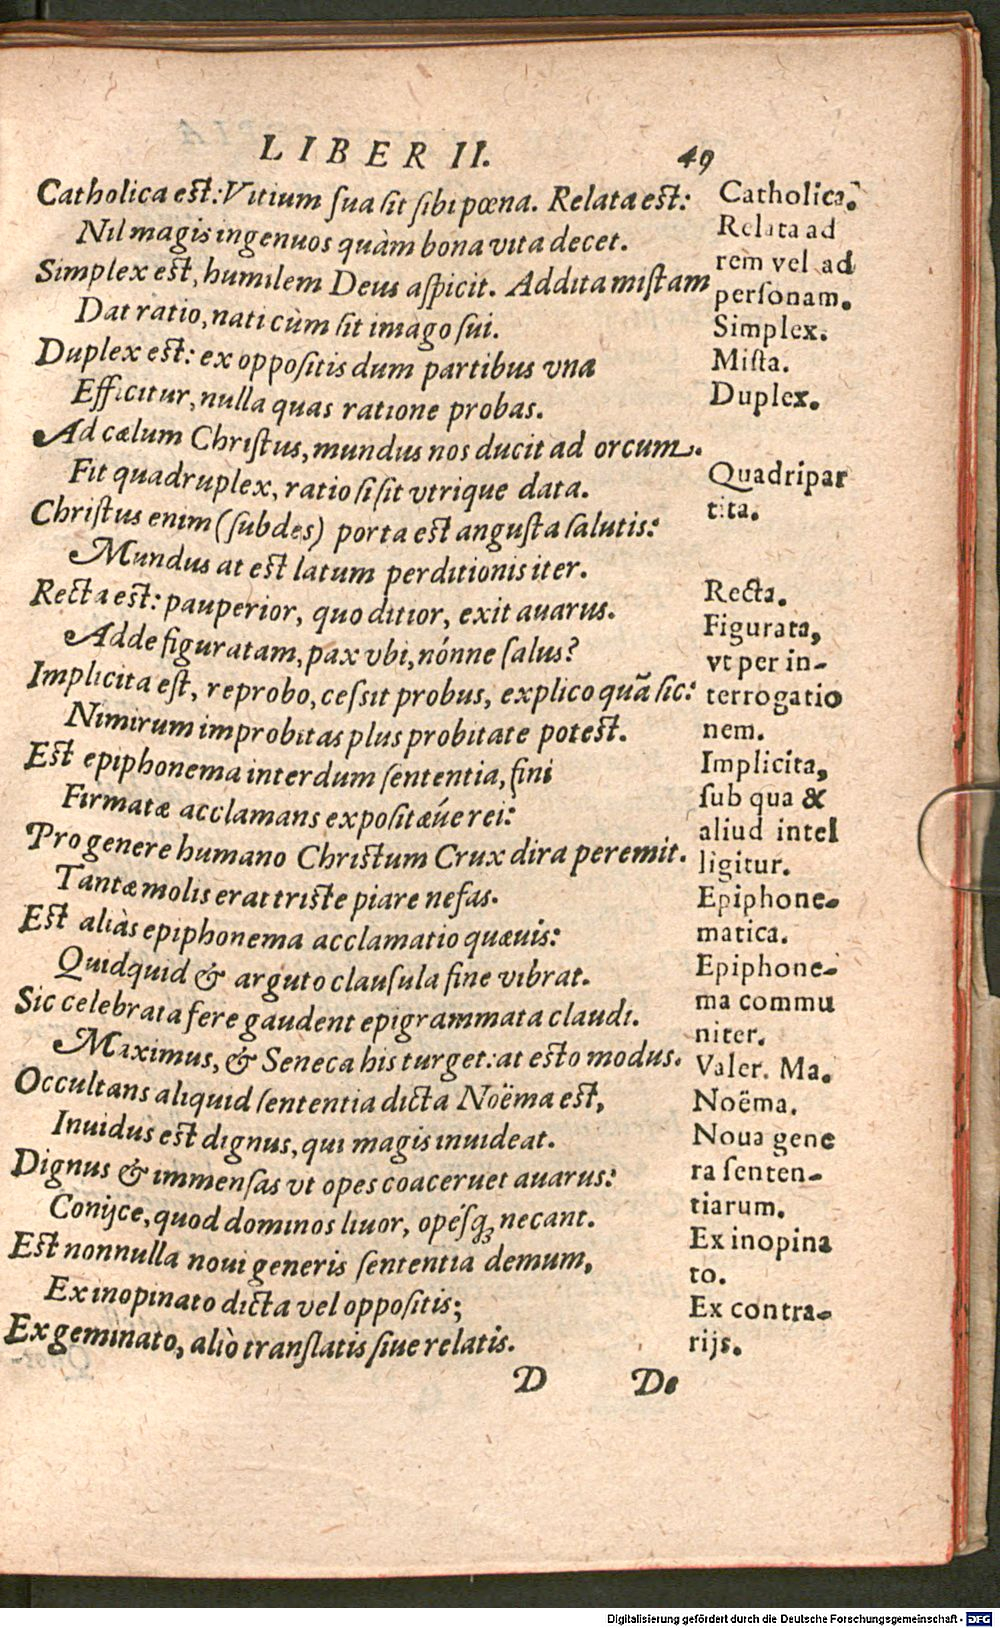 LIBER II. 49
Catholica est: Vitium sua sit sibi pœna. Relata est:
Nil magis ingenuos quàm bona vita decet.
Simplex est, humilem Deus aspicit. Addita mistam
Dat ratio, nati cùm sit imago sui.
Duplex est: ex oppositis dum partibus vna
Efficitur, nulla quas ratione probas.
Ad cælum Christus, mundus nos ducit ad orcum.
Fit quadruplex, ratio si sit vtrique data.
Christus enim (subdes) porta est angusta salutis:
Mundus at est latum perditionis iter.
Recta est: pauperior, quo ditior, exit auarus.
Adde figuratam, pax vbi, nónne salus?
Implicita est, reprobo, cessit probus, explico quã sic:
Nimirum improbitas plus probitate potest.
Est epiphonema interdum sententia, fini
Firmatæ acclamans expositæúe rei:
Pro genere humano Christum Crux dira peremit.
Tantæ molis erat triste piare nefas.
Est aliàs epiphonema acclamatio quæuis:
Quidquid & arguto clausula fine vibrat.
Sic celebrata fere gaudent epigrammata claudi.
Maximus, & Seneca his turget: at esto modus.
Occultans aliquid sententia dicta Noëma est,
Inuidus est dignus, qui magis inuideat.
Dignus & immensas vt opes coaceruet auarus:
Conijce, quod dominos liuor, opésq́ꝫ necant.
Est nonnulla noui generis sententia demum,
Ex inopinato dicta vel oppositis;
Ex geminato, aliò translatis siue relatis.
D De
Catholica.
Relata ad
rem vel ad
personam.
Simplex.
Mista.
Duplex.
Quadripar
tita.
Recta.
Figurata,
vt per in-
terrogatio
nem.
Implicita,
sub qua &
aliud intel
ligitur.
Epiphone-
matica.
Epiphone-
ma commu
niter.
Valer. Ma.
Noëma.
Noua gene
ra senten-
tiarum.
Ex inopina
to.
Ex contra-
rijs.
Digitalisierung gefördert durch die Deutsche Forschungsgemeinschaft - DFG